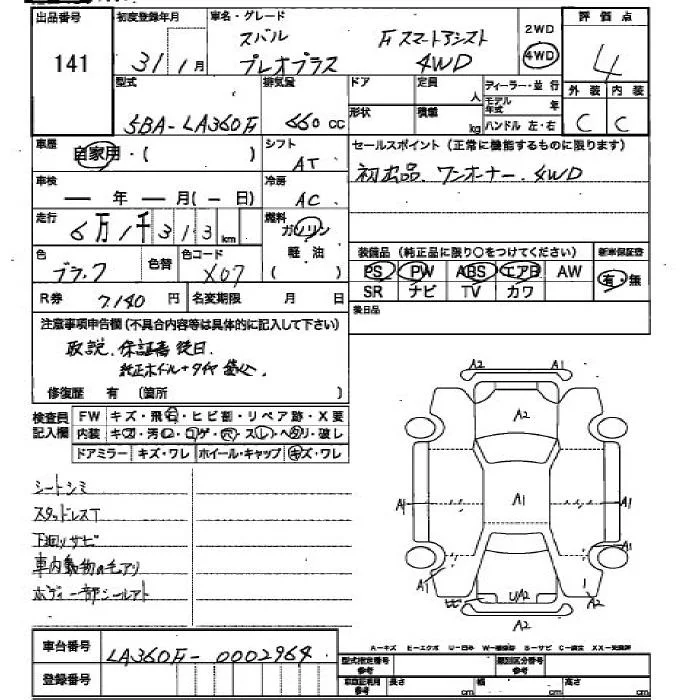 出品番号 初度登録年月 車名・グレード 2WD 評価点
141 31年1月 スバル F スマートアシスト 4WD 4
プレオプラス 4WD
型式 排気量 ドア 定員 人 ディーラー・並行 外装 内装
5BA-LA360F 660cc 形状 積載 kg モデル年式 年 C C
ハンドル 左・右
車歴 自家用・( ) シフト AT セールスポイント(正常に機能するものに限ります)
初出品、ワンオーナー、4WD
車検 ― 年 ― 月(― 日) 冷房 AC
走行 6万1千313km 燃料 ガソリン
軽油
色 ブラック 色替 色コード X07 装備品(純正品に限り○をつけてください) 新車保証書
PS PW ABS エアB AW 有・無
SR ナビ TV カワ
R券 7.140円 名変期限 月 日 後日品
注意事項申告欄(不具合内容等は具体的に記入して下さい)
取説、保証書後日
純正ホイル+タイヤ
修復歴 有 (箇所 )
検査員記入欄 FW キズ・飛石・ヒビ割・リペア跡・X要
内装 キズ・汚・コゲ・穴・スレ・ヘタリ・破レ
ドアミラー キズ・ワレ ホイール・キャップ キズ・ワレ
シートシミ
スタッドレスT
下回りサビ
車内動物の毛アリ
ボディー一部シールアト
A2 A1
A2
A1 A1 A1
A1
A1 UA2 A2
A2
車台番号 LA360F-0002964
登録番号
A-キズ E-エクボ U-凹み W-補修跡 S-サビ C-腐蝕 XX-交換済
型式指定番号 参考 類別区分番号 参考
車庫証利用 参考 長さ cm 幅 cm 高さ cm